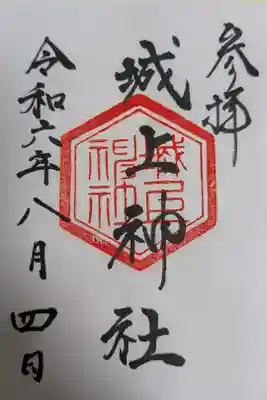 参拝
城上神社
令和六年八月四日
城上神社